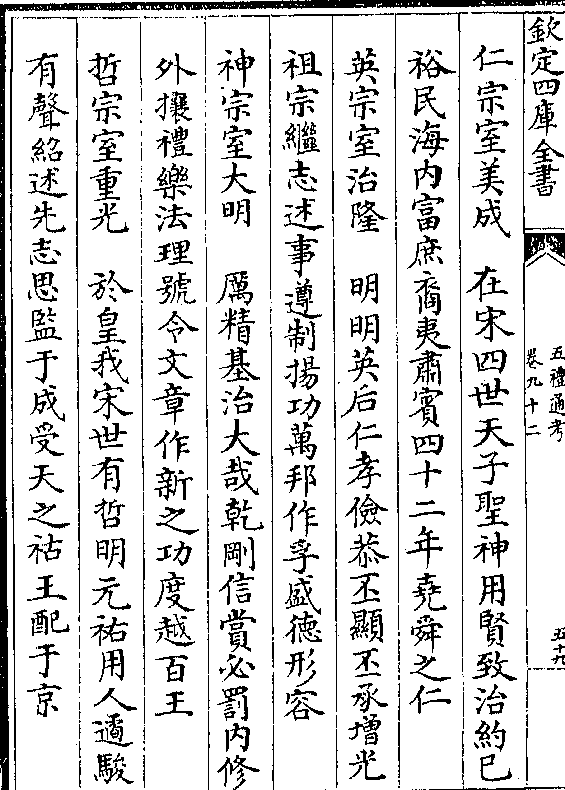 欽定四庫全書
五禮通考
卷九十二
五十九
仁宗室美成　在宋四世天子聖神用賢致治約已
裕民海内富庶裔夷肅賓四十二年堯舜之仁
英宗室治隆　明明英后仁孝儉恭丕顯丕承増光
祖宗繼志述事遵制揚功萬邦作孚盛德形容
神宗室大明　厲精基治大哉乾剛信賞必罰内修
外攘禮樂法理號令文章作新之功度越百王
哲宗室重光　於皇我宋世有哲明元祐用人遹駿
有聲紹述先志思監于成受天之祜王配于京